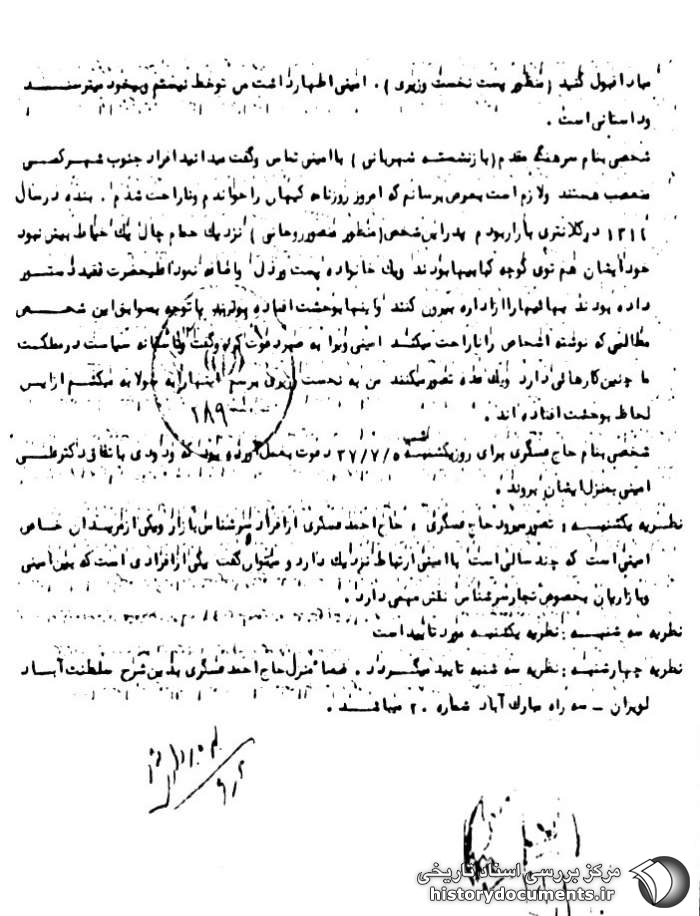 مبادا قبول کنید (منظور پست نخست وزیری) . امینی اظهار داشت من توخط نیستم وبیخود میترسند
وداستانی است .
شخصی بنام سرهنگ مقدم (بازنشسته شهربانی) باامینی تماس وگفت میدانید افراد جنوب شهر کمی
متعصب هستند ولازم است بعرض برسانم که امروز روزنامه کیهان را خواندم وناراحت شدم . بنده درسال
۱۳۱۲ در کلانتری بازار بودم پدر این شخص (منظور منصور روحانی) نزدیک حمام چال یک خیاط بیش نبود
خود ایشان هم توی کوچه کبابیها بودند ویک خانواده پست ورذل واعلیحضرت فقید دستور
داده بودند بهائیها را از اداره بیرون کنند واینها بوحشت افتاده بودند باتوجه بسوابق این شخص
مطالبی که نوشته اشخاص را ناراحت میکند امینی ویرا به صبر دعوت کرد وگفت متاسفانه سیاست در مملکت
ما چنین کارهائی دارد ویک عده تصور میکنند من به نخست وزیری برسم اینها را به چولابه میکشم از این
لحاظ بوحشت افتاده اند .
۲۸۹
شخصی بنام حاج عسگری برای روز یکشنبه ۳۷/۷/۵ دعوت بعمل آورده بود که ودودی باتفاق دکتر علی
امینی بمنزل ایشان بروند .
نظریه یکشنبه : تصور میرود حاج عسگری ، حاج احمد عسگری از افراد سرشناس بازار ویکی از مریدان خاص
امینی است که چند سالی است باامینی ارتباط نزدیک دارد و میتوان گفت یکی از افرادی است که بین امینی
وبازاریان بخصوص تجار سرشناس نقش مهمی دارد .
نظریه سه شنبه : نظریه یکشنبه مورد تائید است
نظریه چهارشنبه : نظریه سه شنبه تایید میگردد . ضمنا منزل حاج احمد عسگری بدین شرح سلطنت آباد
لویزان – سه راه مبارک آباد شماره ۲۰ میباشد .
مرکز بررسی اسناد تاریخی
historydocuments.ir